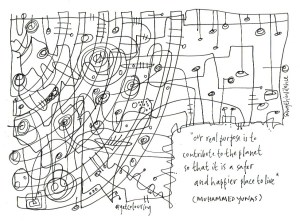 "our real purpose is to
contribute to the planet
so that it is a safer
and happier place to live"
(MUHAMMED YUNAS)